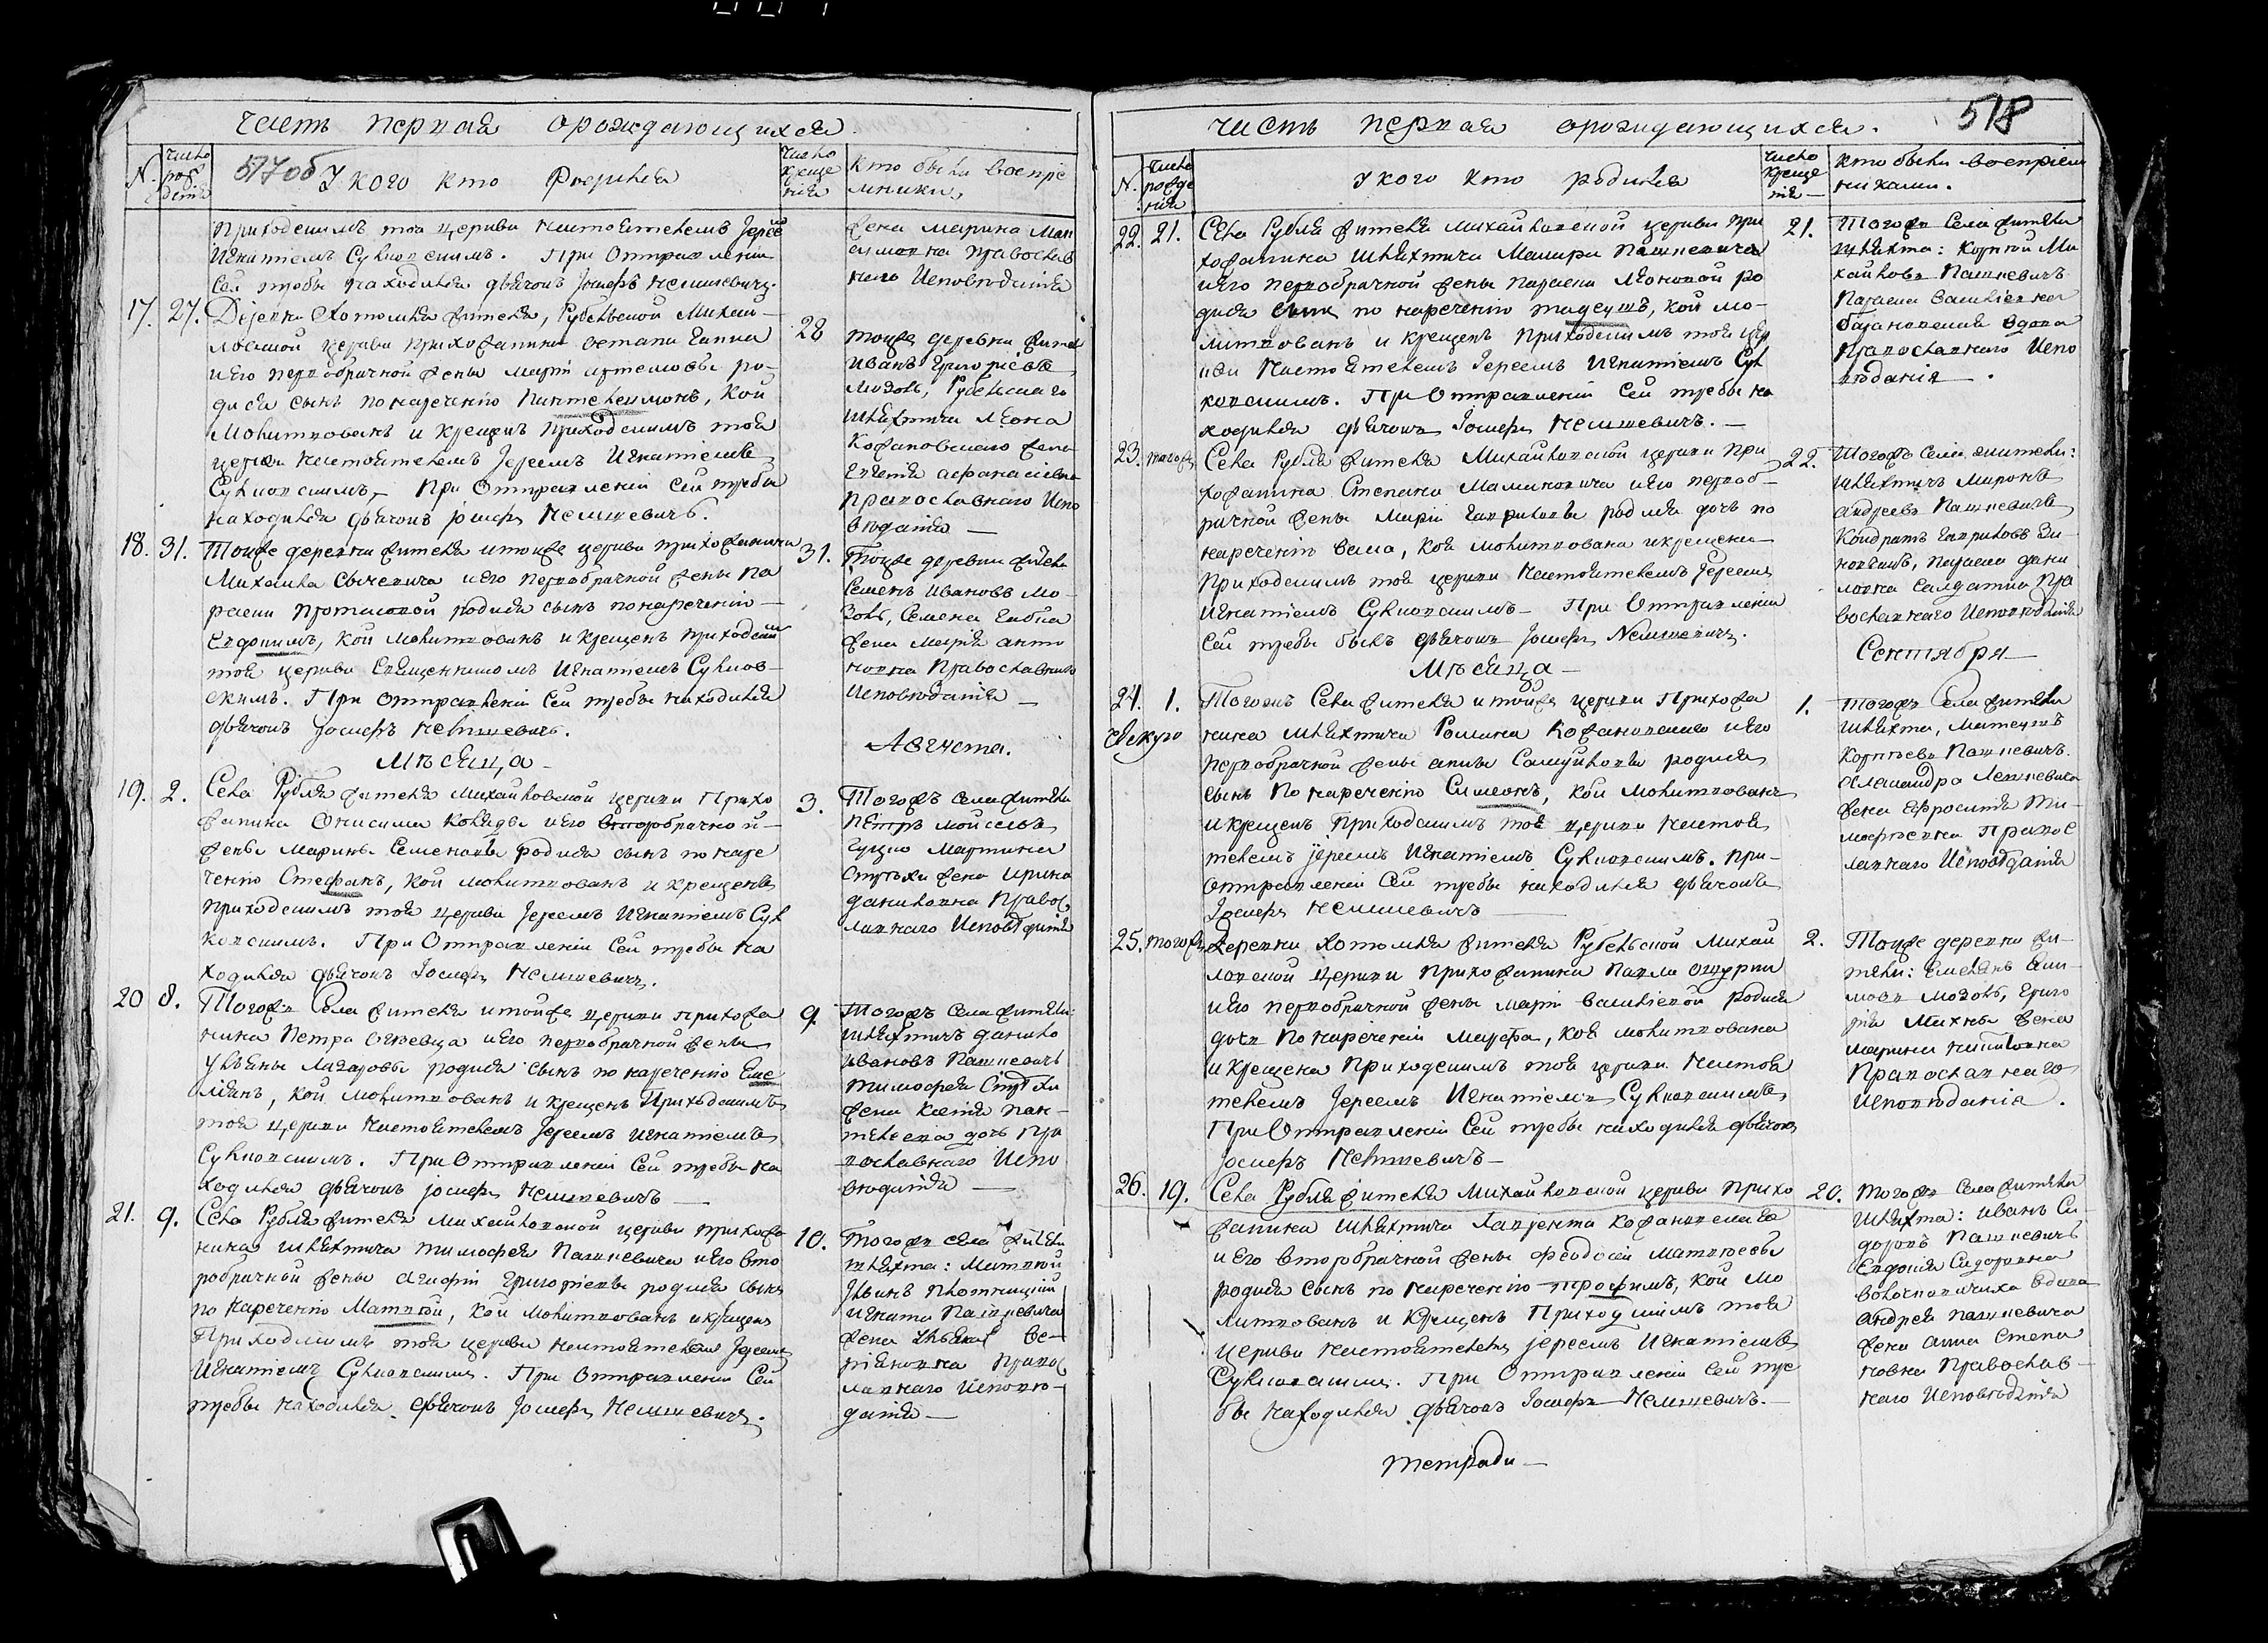 Часть первая орождающихся.
N.
Число рождения
517 об
У кого кто родился
Число крещения
Кто были воспріемники
приходскимъ тоя церкви настоятелемъ Іерее
Игнатіемъ Сулковскимъ. При Отправленіи
Сей требы находился дьячокъ Іосифъ Немшевичъ.
жена Марина Мак
симовна Православ
наго Исповѣданія
17. 27.
Хотомля жителя, Рубельской Михай
ловской церкви прихожанина
и его первобрачной жены Маріи Артемовы ро-
дился сынъ по нареченію Пантелеимонъ, кой
Молитвованъ и крещенъ приходскимъ тоя
церкви настоятелемъ Іереемъ Игнатіемъ
Сулковскимъ, При Отправленіи Сей требы
находился дьячокъ Іосифъ Немшевичъ.
28
тоиже деревни жител
Иванъ Григоріевъ
Мозоль, Рубельскаго
шляхтича Леона
Кожановскаго жена
Евгенія Афанасіевна
православнаго Испо
вѣданія
18. 31.
Тоиже деревни жителя и тоиже церкви прихожанина
Михаила Сычевича и его первобрачной жены Па
раски Протасовой родился сынъ по нареченію
Евдокимъ, кой молитвованъ и крещенъ приходским
тоя церкви Священникомъ Игнатіемъ Сулков-
скимъ. При отправленіи Сей требы находился
дьячокъ Іосифъ Немшевичъ.
31.
Тоиже деревни жители
Семенъ Ивановъ Мо-
золь, Семена
жена Марія Анто
новна Православнаго
Исповѣданія
Мѣсяца
Августа.
19. 2.
Села Рубля жителя Михайловской церкви Прихо
жанина Онисима Коляды и его второбрачной
жены Марины Семеновы родился сынъ по наре
ченію Стефанъ, кой молитвованъ и крещенъ
приходскимъ тоя церкви Іереемъ Игнатіемъ Сул
ковскимъ. При Отправленіи Сей требы на
ходился дьячокъ Іосифъ Немшевичъ.
3.
Тогожъ села жители
Петръ Мойсеевъ
Мартина
жена Ирина
Даниловна Правос
лавнаго Исповѣданія
20 8.
Тогожъ Села жителя и тойже церкви прихожа
нина Петра и его первобрачной жены
Ульяны Лазаровы родился сынъ по нареченію Еме
ліянъ, кой молитвованъ и крещенъ Приходскимъ
тоя церкви настоятелемъ Іереемъ Игнатіемъ
Сулковскимъ. При Отправленіи Сей требы на
ходился дьячокъ Іосифъ Немшевичъ
9.
Тогожъ села жители:
шляхтичъ Данило
Ивановъ Пашкевичъ
Тимофея
жена Ксенія Пан-
дочь Пра
вославнаго Испо
вѣданія
21. 9.
Села Рубля жителя Михайловской церкви прихожа
нина шляхтича Тимофея Пашкевича и его вто
робрачной жены Агафіи Григоріевы родился сынъ
по нареченію Матвей, кой молитвованъ и крещенъ
Приходскимъ тоя церкви настоятелемъ Іереемъ
Игнатіемъ Сулковскимъ. При Отправленіи Сей
требы находился дьячокъ Іосифъ Немшевичъ.
10.
Тогожъ села жители
шляхта: Матвей
Плотницкій
Игната Пашкевича
жена
Правос
лавнаго Исповѣ-
данія
518
Часть первая орождающихся.
N.
Число рожде
нія
У кого кто родился
Число креще
нія
Кто были воспріем
никами.
22. 21.
Села Рубля жителя Михайловской церкви при
хожанина шляхтича Макара Пашкевича
и его первобрачной жены Параски Леоновой ро
дился сынъ по нареченію Тадеушъ, кой мо-
литвованъ и крещенъ приходскимъ тоя цер
кви Настоятелемъ Іереемъ Игнатіемъ Сул
ковскимъ. При Отправленіи Сей требы на
ходился дьячокъ Іосифъ Немшевичъ.
21.
Тогожъ Села жители
шляхта: Корней Ми
хайловъ Пашкевичъ
Параска Василіевна
вдова
Православнаго Испо
вѣданія.
23. тогожъ
Села Рубля жителя Михайловской церкви при
хожанина Степана и его первоб-
рачной жены Маріи Гавриловы родилась дочь по
нареченію Васса, коя молитвована и крещена
Приходскимъ тоя церкви Настоятелемъ Іереемъ
Игнатіемъ Сулковскимъ. При Отправленіи
Сей требы былъ дьячокъ Іосифъ Немшевичъ.
22.
Тогожъ села жители:
шляхтичъ Миронъ
Андреевъ Пашкевичъ
Кондратъ Гавриловъ
Параска Дани
ловна Солдатка Пра
вославнаго Исповѣданія
Мѣсяца
Сентября
24. 1.
Тогожъ Села жителя и тойже церкви Прихожа
нина шляхтича Романа Кожановскаго и его
первобрачной жены Анны Самуйловы родился
сынъ по нареченію Симеонъ, кой молитвованъ
и крещенъ приходскимъ тоя церкви настоя
телемъ Іереемъ Игнатіемъ Сулковскимъ. При-
отправленіи Сей требы находился дьячокъ
Іосифъ Немшевичъ
1.
Тогожъ Села жители
шляхта,
Корнѣевъ Пашкевичъ.
Александра Пашкевича
жена Ефросинія Ти-
мофеевна Правос
лавнаго Исповѣданія
25. тогожъ
Деревни Хотомля жителя Рубельской Михай
ловской церкви прихожанина Павла
и его первобрачной жены Маріи Василіевой родилась
дочь по нареченіи Марфа, коя молитвована
и крещена Приходскимъ тоя церкви Настоя
телемъ Іереемъ Игнатіемъ Сулковскимъ,
При Отправленіи Сей требы находился дьячокъ
Іосифъ Немшевичъ
2.
Тоиже деревни жи-
тели: Емельянъ
Мозоль, Григо
рія Михны жена
Марина
Православнаго
Исповѣданія.
26. 19.
Села Рубля жителя Михайловской церкви Прихо
жанина шляхтича Лаврента Кожановскаго
и его второбрачной жены Феодосіи Матвеевы
родился сынъ по нареченію Трофимъ, кой мо
литвованъ и крещенъ Приходскимъ тоя
церкви настоятелемъ Іереемъ Игнатіемъ
Сулковскимъ. При Отправленіи Сей тре
бы находился дьячокъ Іосифъ Немшевичъ.
20.
Тогожъ Села жители
шляхта: Иванъ Си
доровъ Пашкевичъ
Евдокія Сидоровна
вдова
Андрея Пашкевича
жена Анна Степа
новна Православ-
наго Исповѣданія
тетради